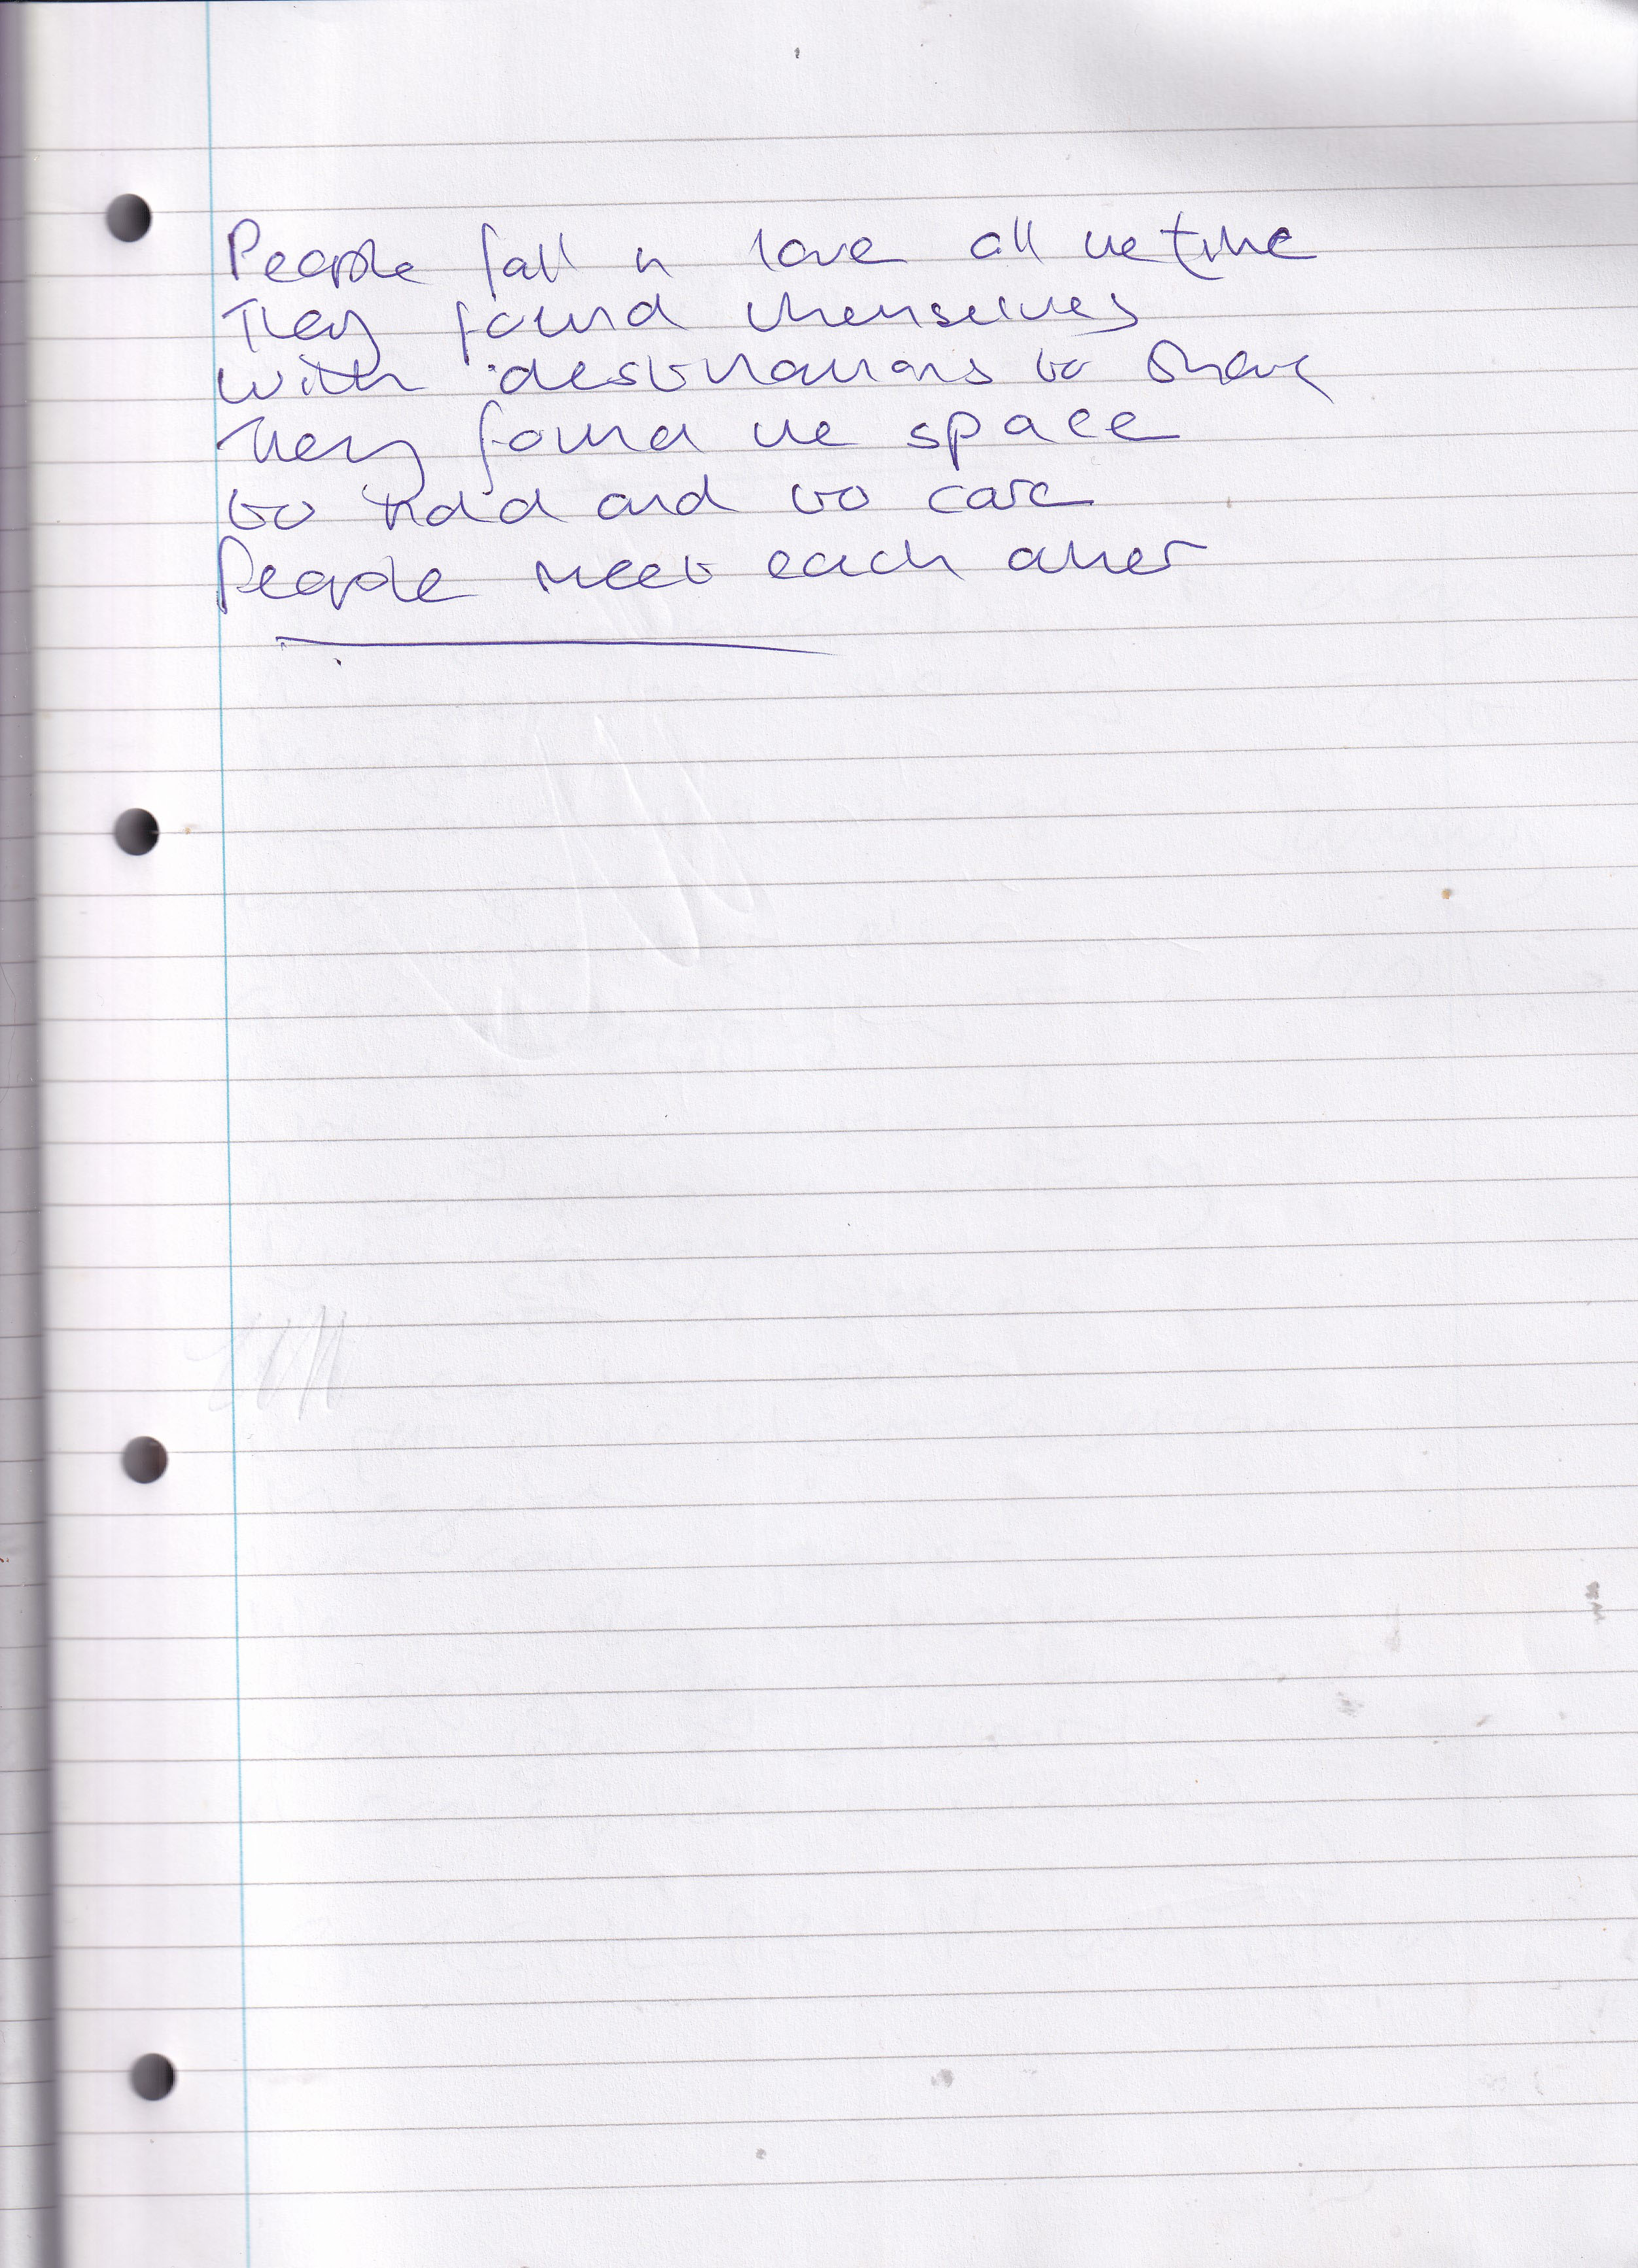 People fall in love all the time
They found themselves
with destinations to share
They found the space
to and to care
People meet each other